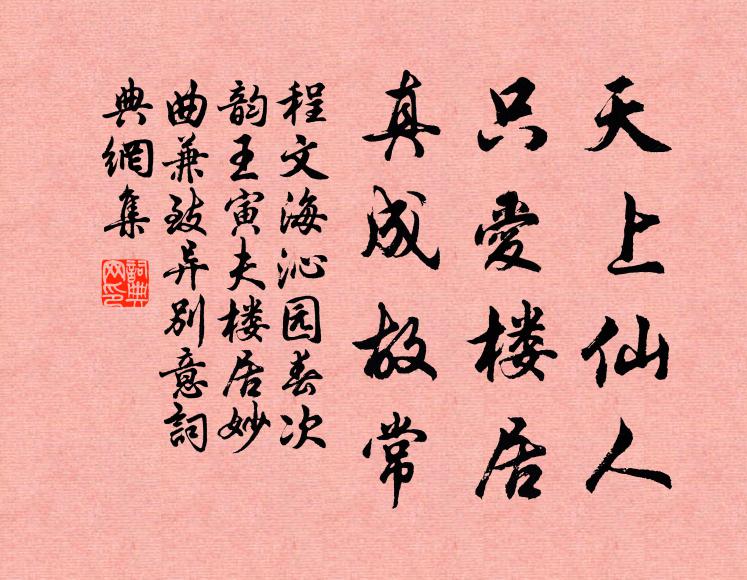 天上仙人
只愛楼居
真成故常
程文海沁园春次
韵王寅夫楼居妙
曲兼致异别意詞
典網集
詞典网印